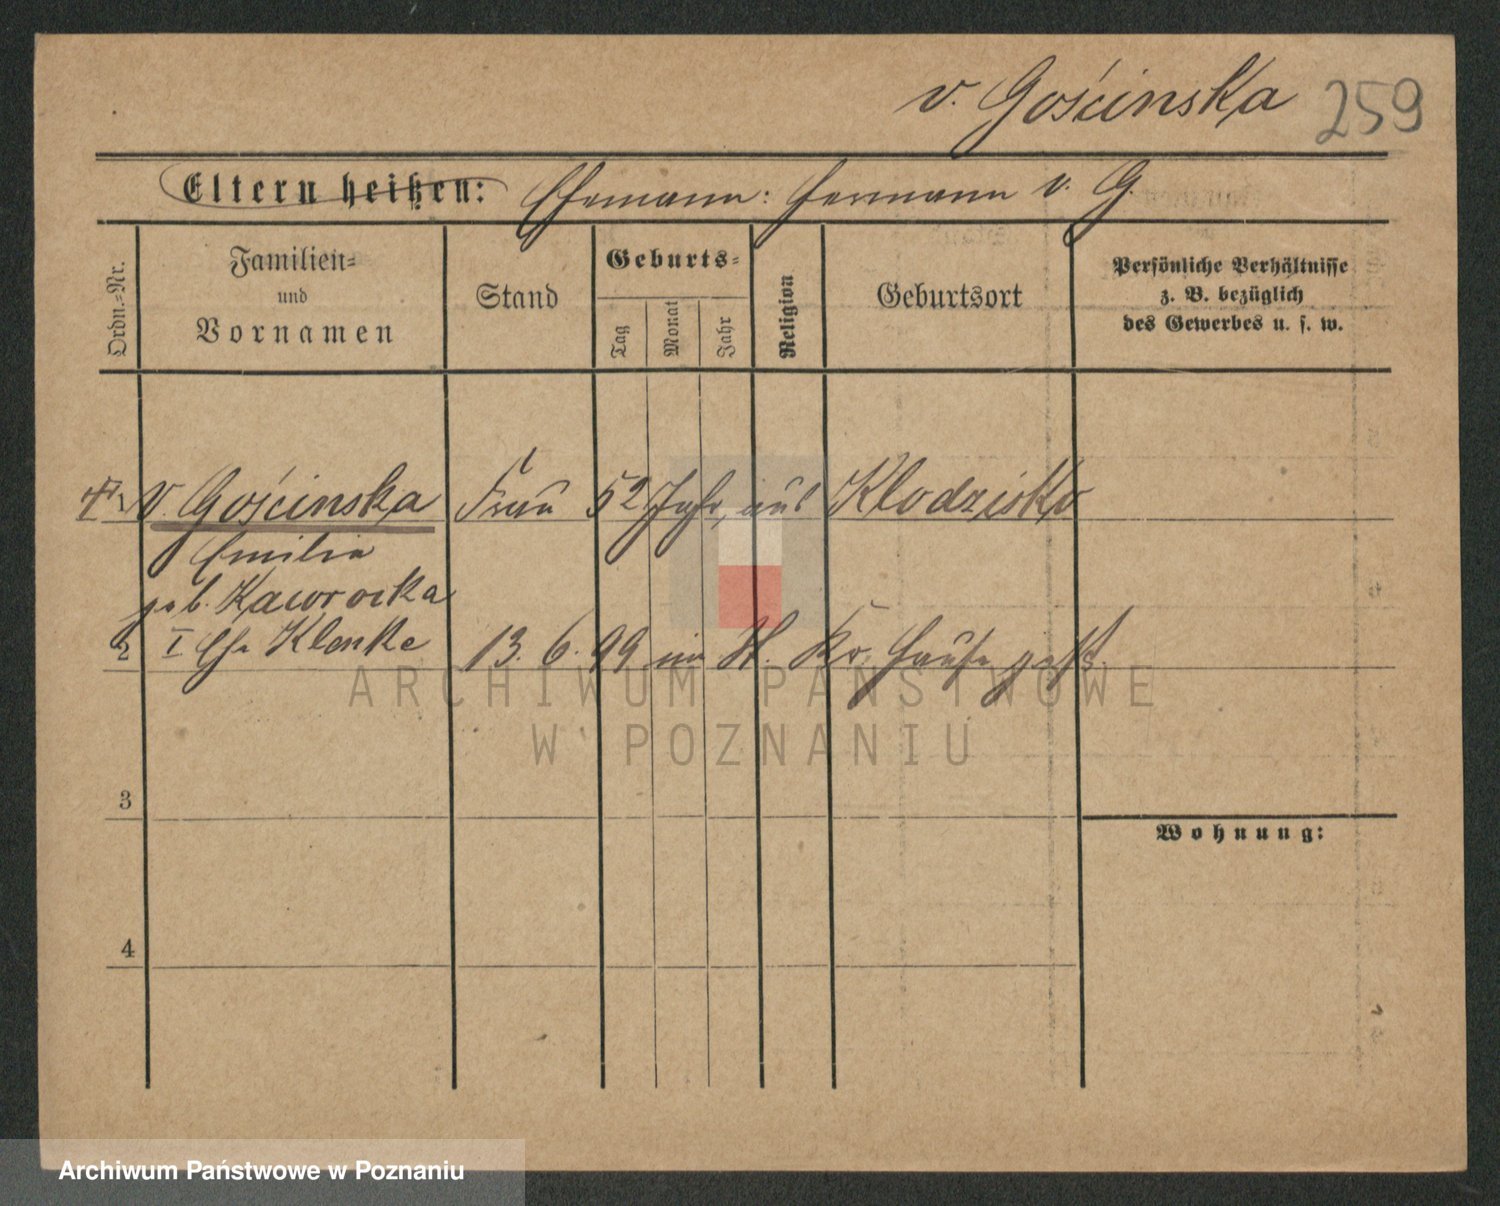 v. Gościnska 259
Eltern heißen: Ehemann: Hermann v. G.
Ordn.-Nr.
Familien-
und
Vornamen
Stand
Geburts-
Tag
Monat
Jahr
Religion
Geburtsort
Persönliche Verhältnisse
z. B. bezüglich
des Gewerbes u. s. w.
v. Gościnska Frau 52 Jahr, aus Klodzisko
Emilia
geb. Kaworocka
2 I Ehe Klenke 13. 6. 99 im St. Kr. Hause gest.
3
Wohnung:
4
ARCHIWUM PAŃSTWOWE
W POZNANIU
Archiwum Państwowe w Poznaniu